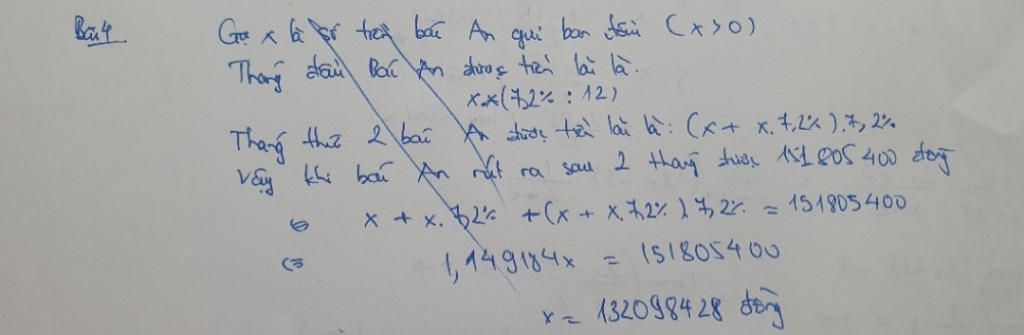 Bài 4 Gọi x là số tiền bác An gửi ban đầu (x > 0)
Tháng đầu Bác An được tiền lãi là.
x.x(7,2% : 12)
Tháng thứ 2 bác An được tiền lãi là: (x + x.7,2%).7,2%
Vậy khi bác An rút ra sau 2 tháng được 151805400 đồng
⇔ x + x.7,2% + (x + x.7,2%)7,2% = 151805400
⇔ 1,149184x = 151805400
x = 132098428 đồng